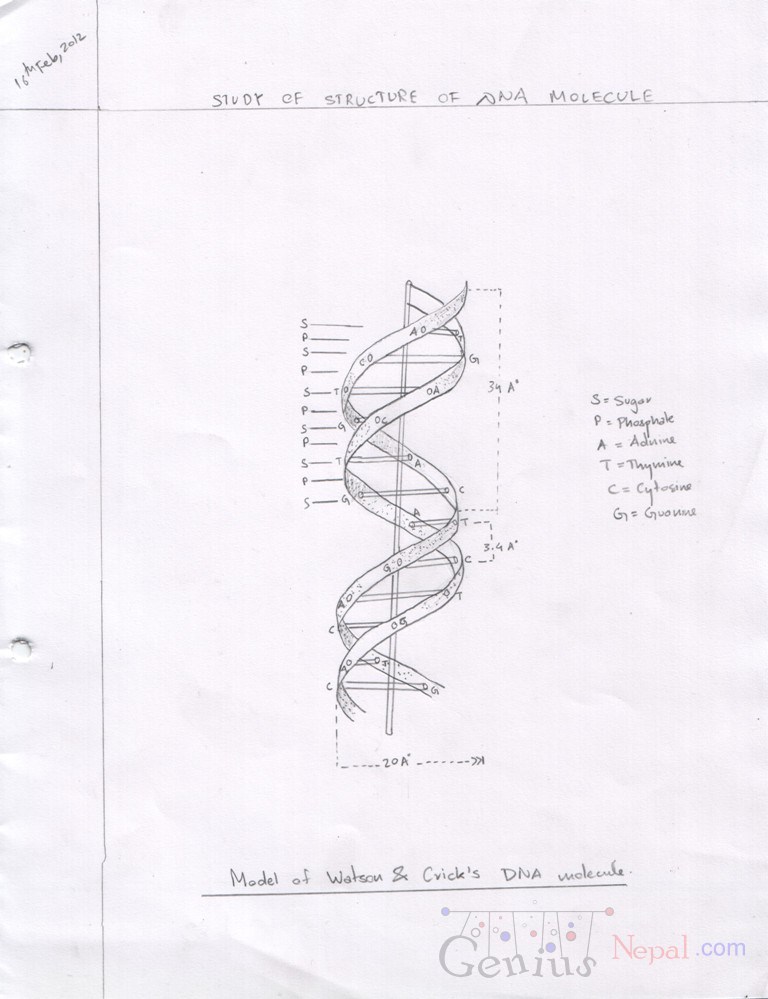 16th Feb, 2012
STUDY OF STRUCTURE OF DNA MOLECULE
S
P
S
P
S
P
S
P
S
P
S
A
T
C
G
T
A
G
C
T
A
G
C
A
T
G
C
A
T
C
G
A
T
C
G
34 A°
3.4 A°
20 A°
S = Sugar
P = Phosphate
A = Adnine
T = Thymine
C = Cytosine
G = Guanine
Model of Watson & Crick's DNA molecule.
Genius Nepal.com